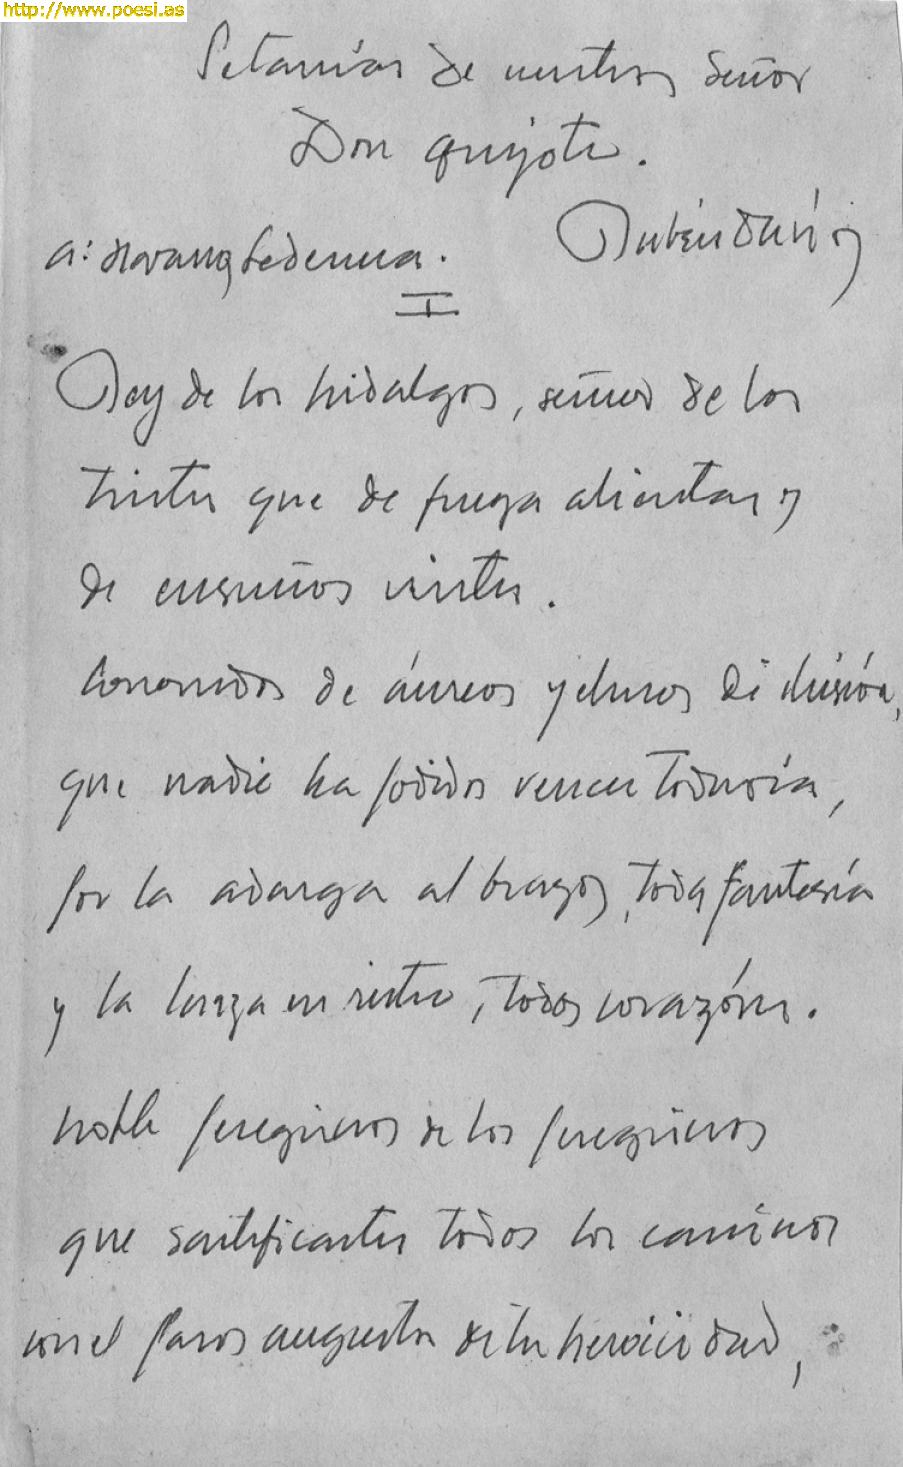 http://www.poesi.as
Letanías de nuestro Señor
Don quijote.
Rubén Darío
a: Navarro Ledesma.
I
Rey de los hidalgos, señor de los
tristes que de fuerza alientas y
de ensueños vistes.
Coronado de áureo yelmo de ilusión,
que nadie ha podido vencer todavía,
por la adarga al brazo, toda fantasía
y la lanza en ristre, todo corazón.
Noble peregrino de los peregrinos
que santificaste todos los caminos
con el paso augusto de tu heroicidad,